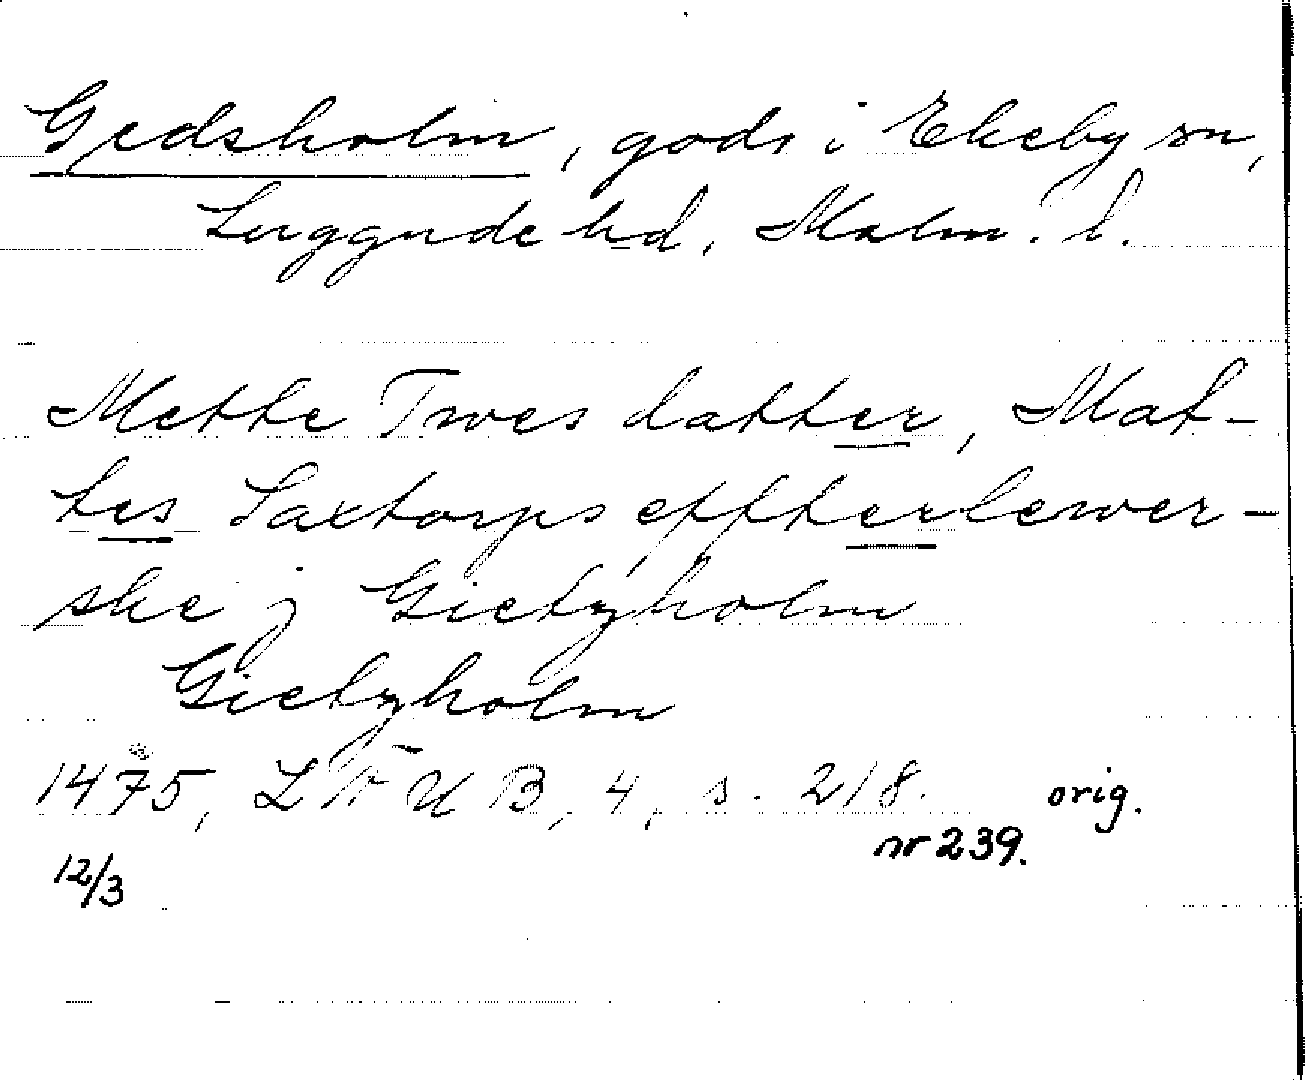 Gedsholm, gods i Ekeby sn,
Luggude hd, Malm. l.
Mette Twes datter, Mat-
tes Saxtorps effterlewer-
ske j Gietzholm
Gietzholm
1475, L Ä U B, 4, s. 218. orig.
nr 239.
12/3